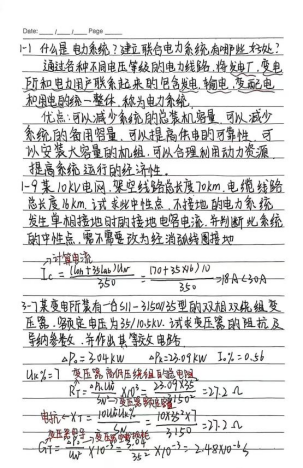 Date: ___/___/___ Page ___
1-1 什么是电力系统？建立联合电力系统有哪些好处？
通过各种不同电压等级的电力线路，将发电厂、变电
所和电力用户联系起来的包含发电、输电、变配电
和用电的统一整体，称为电力系统。
优点：可以减少系统的总装机容量，可以减少
系统的备用容量，可以提高供电的可靠性，可
以安装大容量的机组，可以合理利用动力资源，
提高系统运行的经济性。
1-9 某10kV电网，架空线路总长度70km，电缆线路
总长度16km。试求此中性点不接地的电力系统
发生单相接地时的接地电容电流，并判断此系统
的中性点需不需要改为经消弧线圈接地
计算电流
Ic = (loh+35lcab)Un / 350 = (70+35×16)10 / 350 = 18A < 30A
3-7 某变电所装有一台S11-3150/35型的双相双绕组变
压器，额定电压为35/10.5kV，试求变压器的阻抗及
导纳参数，并作出其等效电路。
△P₀=3.04kW △Pk=23.09kW I₀%=0.56
Uk%=7 变压器高低压绕组的总电阻
RT = △PkUN² / SN² ×10³ = 23.09×35² / 3150² ×10³ = 2.72 Ω
电抗 ← XT = 10Uk%UN² / SN = 10×35²×7 / 3150 = 27.2 Ω
GT = △P₀ / UN² ×10⁻³ = 3.04 / 35² ×10⁻³ = 2.48×10⁻⁶ S